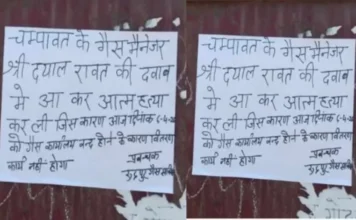 चम्पावत के गैस मैनेजर
श्री दयाल रावत की दवाब
मे आ कर आत्महत्या
कर ली जिस कारण आज दिनांक
को गैस कार्यालय बन्द होने के कारण वितरण
कार्य नहीं होगा
प्रबन्धक
चम्पावत के गैस मैनेजर
श्री दयाल रावत की दवाब
मे आ कर आत्महत्या
कर ली जिस कारण आज दिनांक
को गैस कार्यालय बन्द होने के कारण वितरण
कार्य नहीं होगा
प्रबन्धक